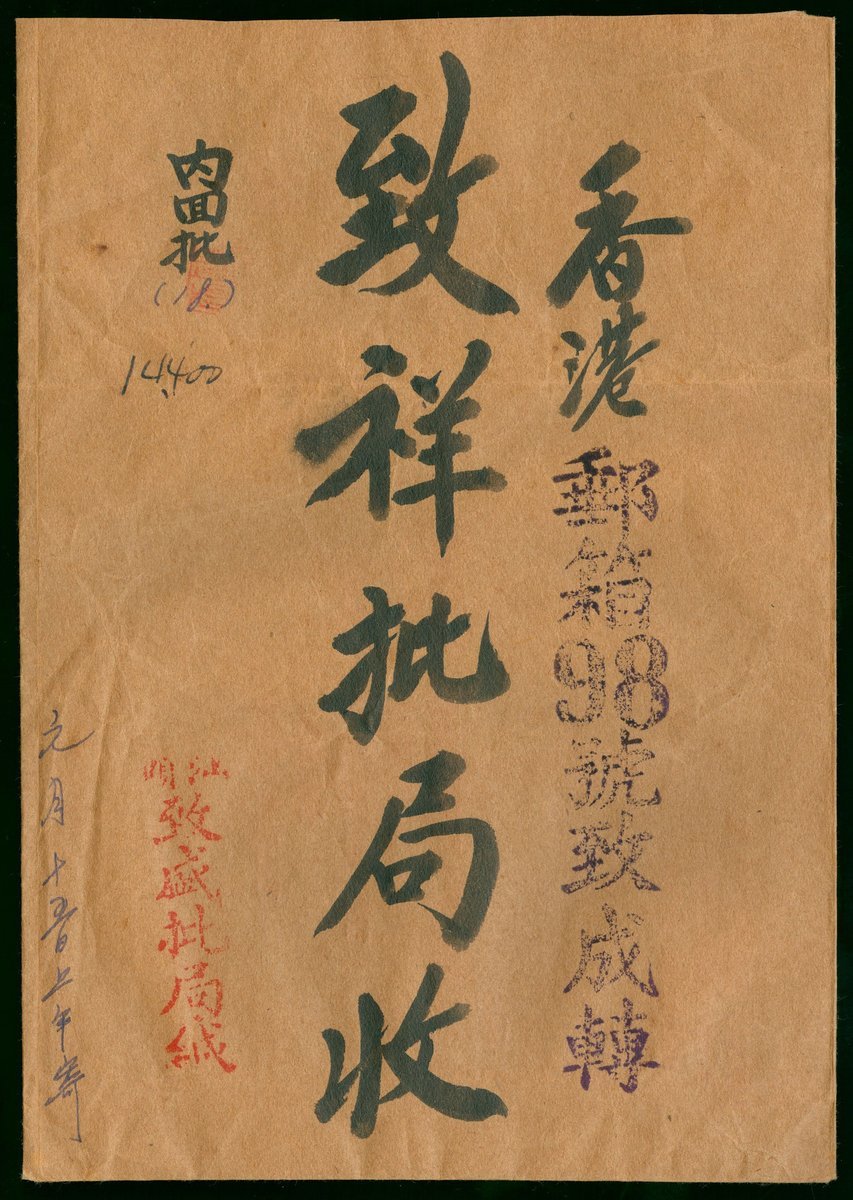 香港郵箱98號致成轉
致祥批局收
内回批
(18)
14,400
致盛批局緘
元月十五日上午寄